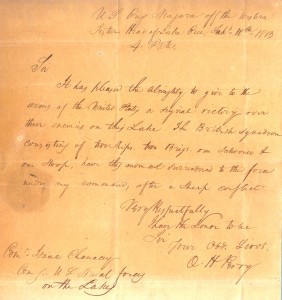 U.S. Brig Niagara off the western
Sister Head of Lake Erie Sept. 10th 1813
4 P.M.
Sir
It has pleased the Almighty to give to the
arms of the United States, a signal victory over
their enemies on this Lake. The British squadron
consisting of two ships, two Brigs, one Schooner &
one Sloop, have this moment surrendered to the force
under my command, after a sharp conflict
Very Respectfully
I have the Honor to be
Sir
Your Obt. Servt.
O. H. Perry
Isaac Chauncey
U.S. Naval forces
on the Lakes